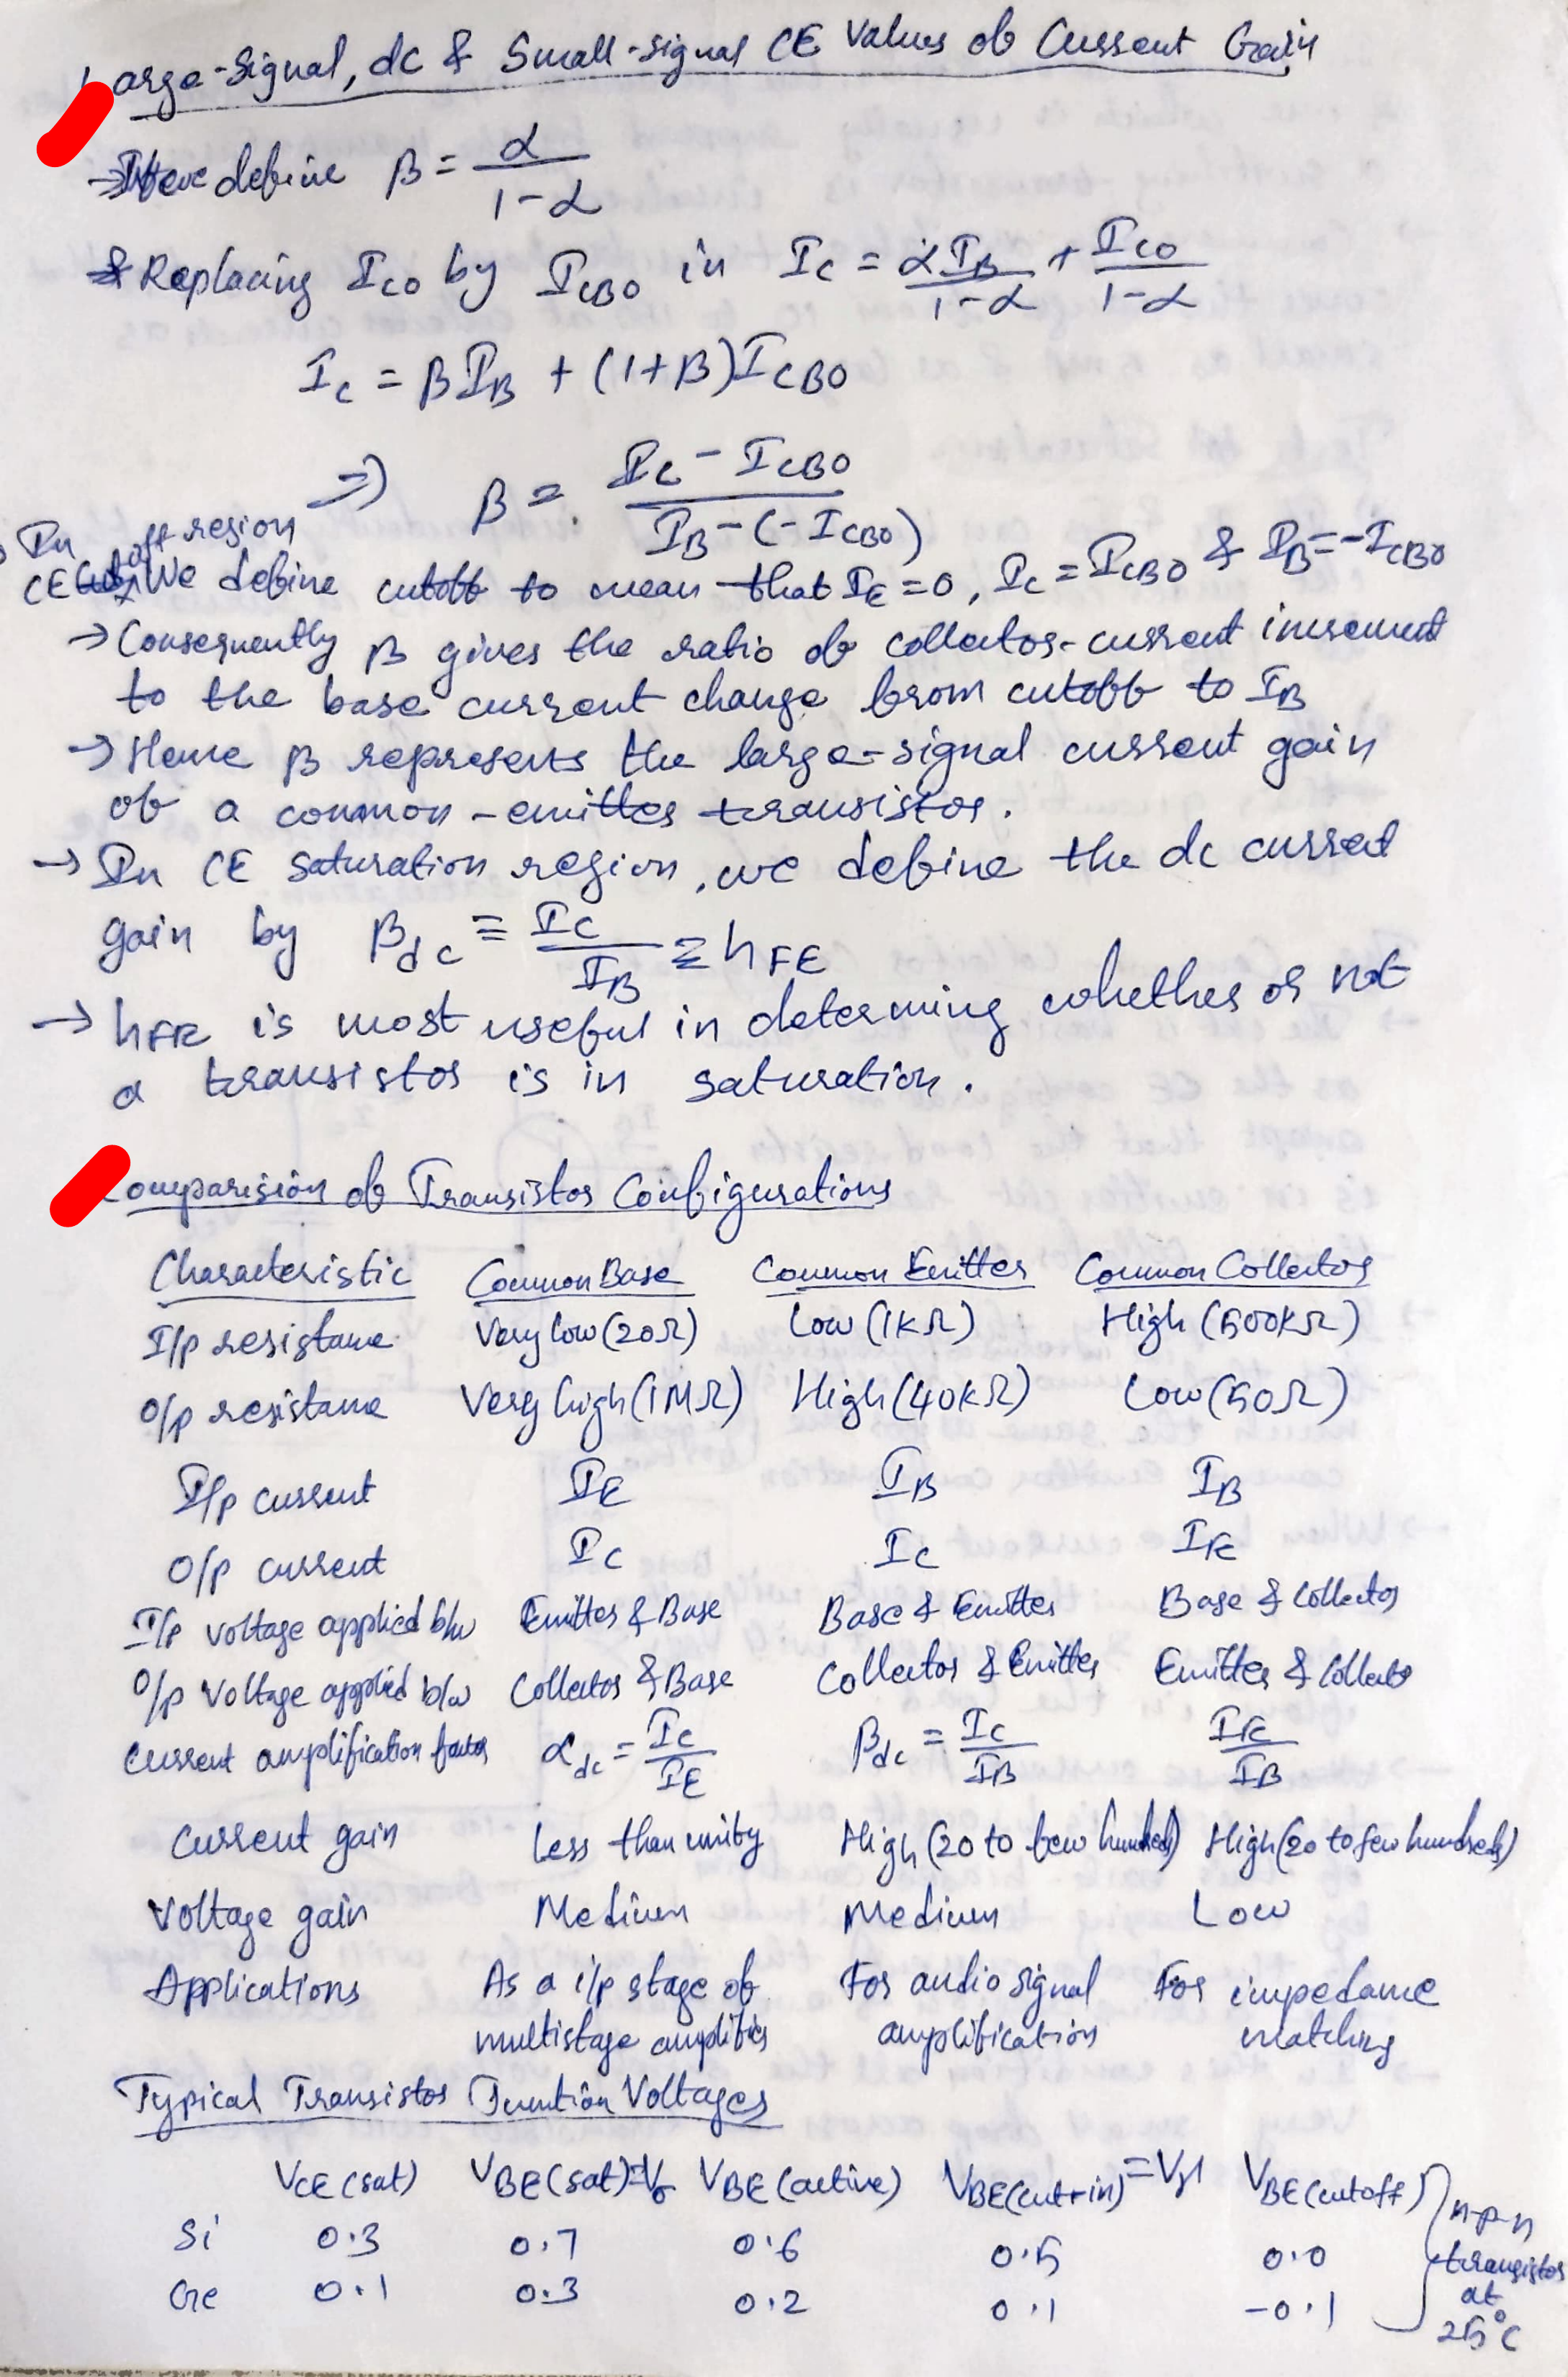 Large-Signal, dc & Small-signal CE Values of Current Gain
→ We define β = α / (1-α)
→ Replacing I_CO by I_CBO in I_C = αI_B/(1-α) + I_CO/(1-α)
I_C = βI_B + (1+β)I_CBO
⇒ β = (I_C - I_CBO) / (I_B - (-I_CBO))
→ In CE Cutoff region We define cutoff to mean that I_E = 0, I_C = I_CBO & I_B = -I_CBO
→ Consequently β gives the ratio of collector-current increment
to the base current change from cutoff to I_B
→ Hence β represents the large-signal current gain
of a common-emitter transistor.
→ In CE saturation region, we define the dc current
gain by β_dc ≡ I_C/I_B ≡ h_FE
→ h_FE is most useful in determing whether or not
a transistor is in saturation.
Comparision of Transistor Configurations
Characteristic Common Base Common Emitter Common Collector
I/p resistance Very low (20Ω) Low (1kΩ) High (500kΩ)
O/p resistance Very high (1MΩ) High (40kΩ) Low (50Ω)
I/p current I_E I_B I_B
O/p current I_C I_C I_E
I/p voltage applied b/w Emitter & Base Base & Emitter Base & Collector
O/p voltage applied b/w Collector & Base Collector & Emitter Emitter & Collector
Current amplification factor α_dc = I_C/I_E β_dc = I_C/I_B I_E/I_B
Current gain Less than unity High (20 to few hundreds) High (20 to few hundreds)
Voltage gain Medium Medium Low
Applications As a i/p stage of For audio signal For impedance
multistage amplifier amplification matching
Typical Transistor Junction Voltages
V_CE (sat) V_BE (sat) = V_σ V_BE (active) V_BE (cut-in) = V_γ V_BE (cutoff)
Si 0.3 0.7 0.6 0.5 0.0
Ge 0.1 0.3 0.2 0.1 -0.1
n-p-n
transistor
at
25°C